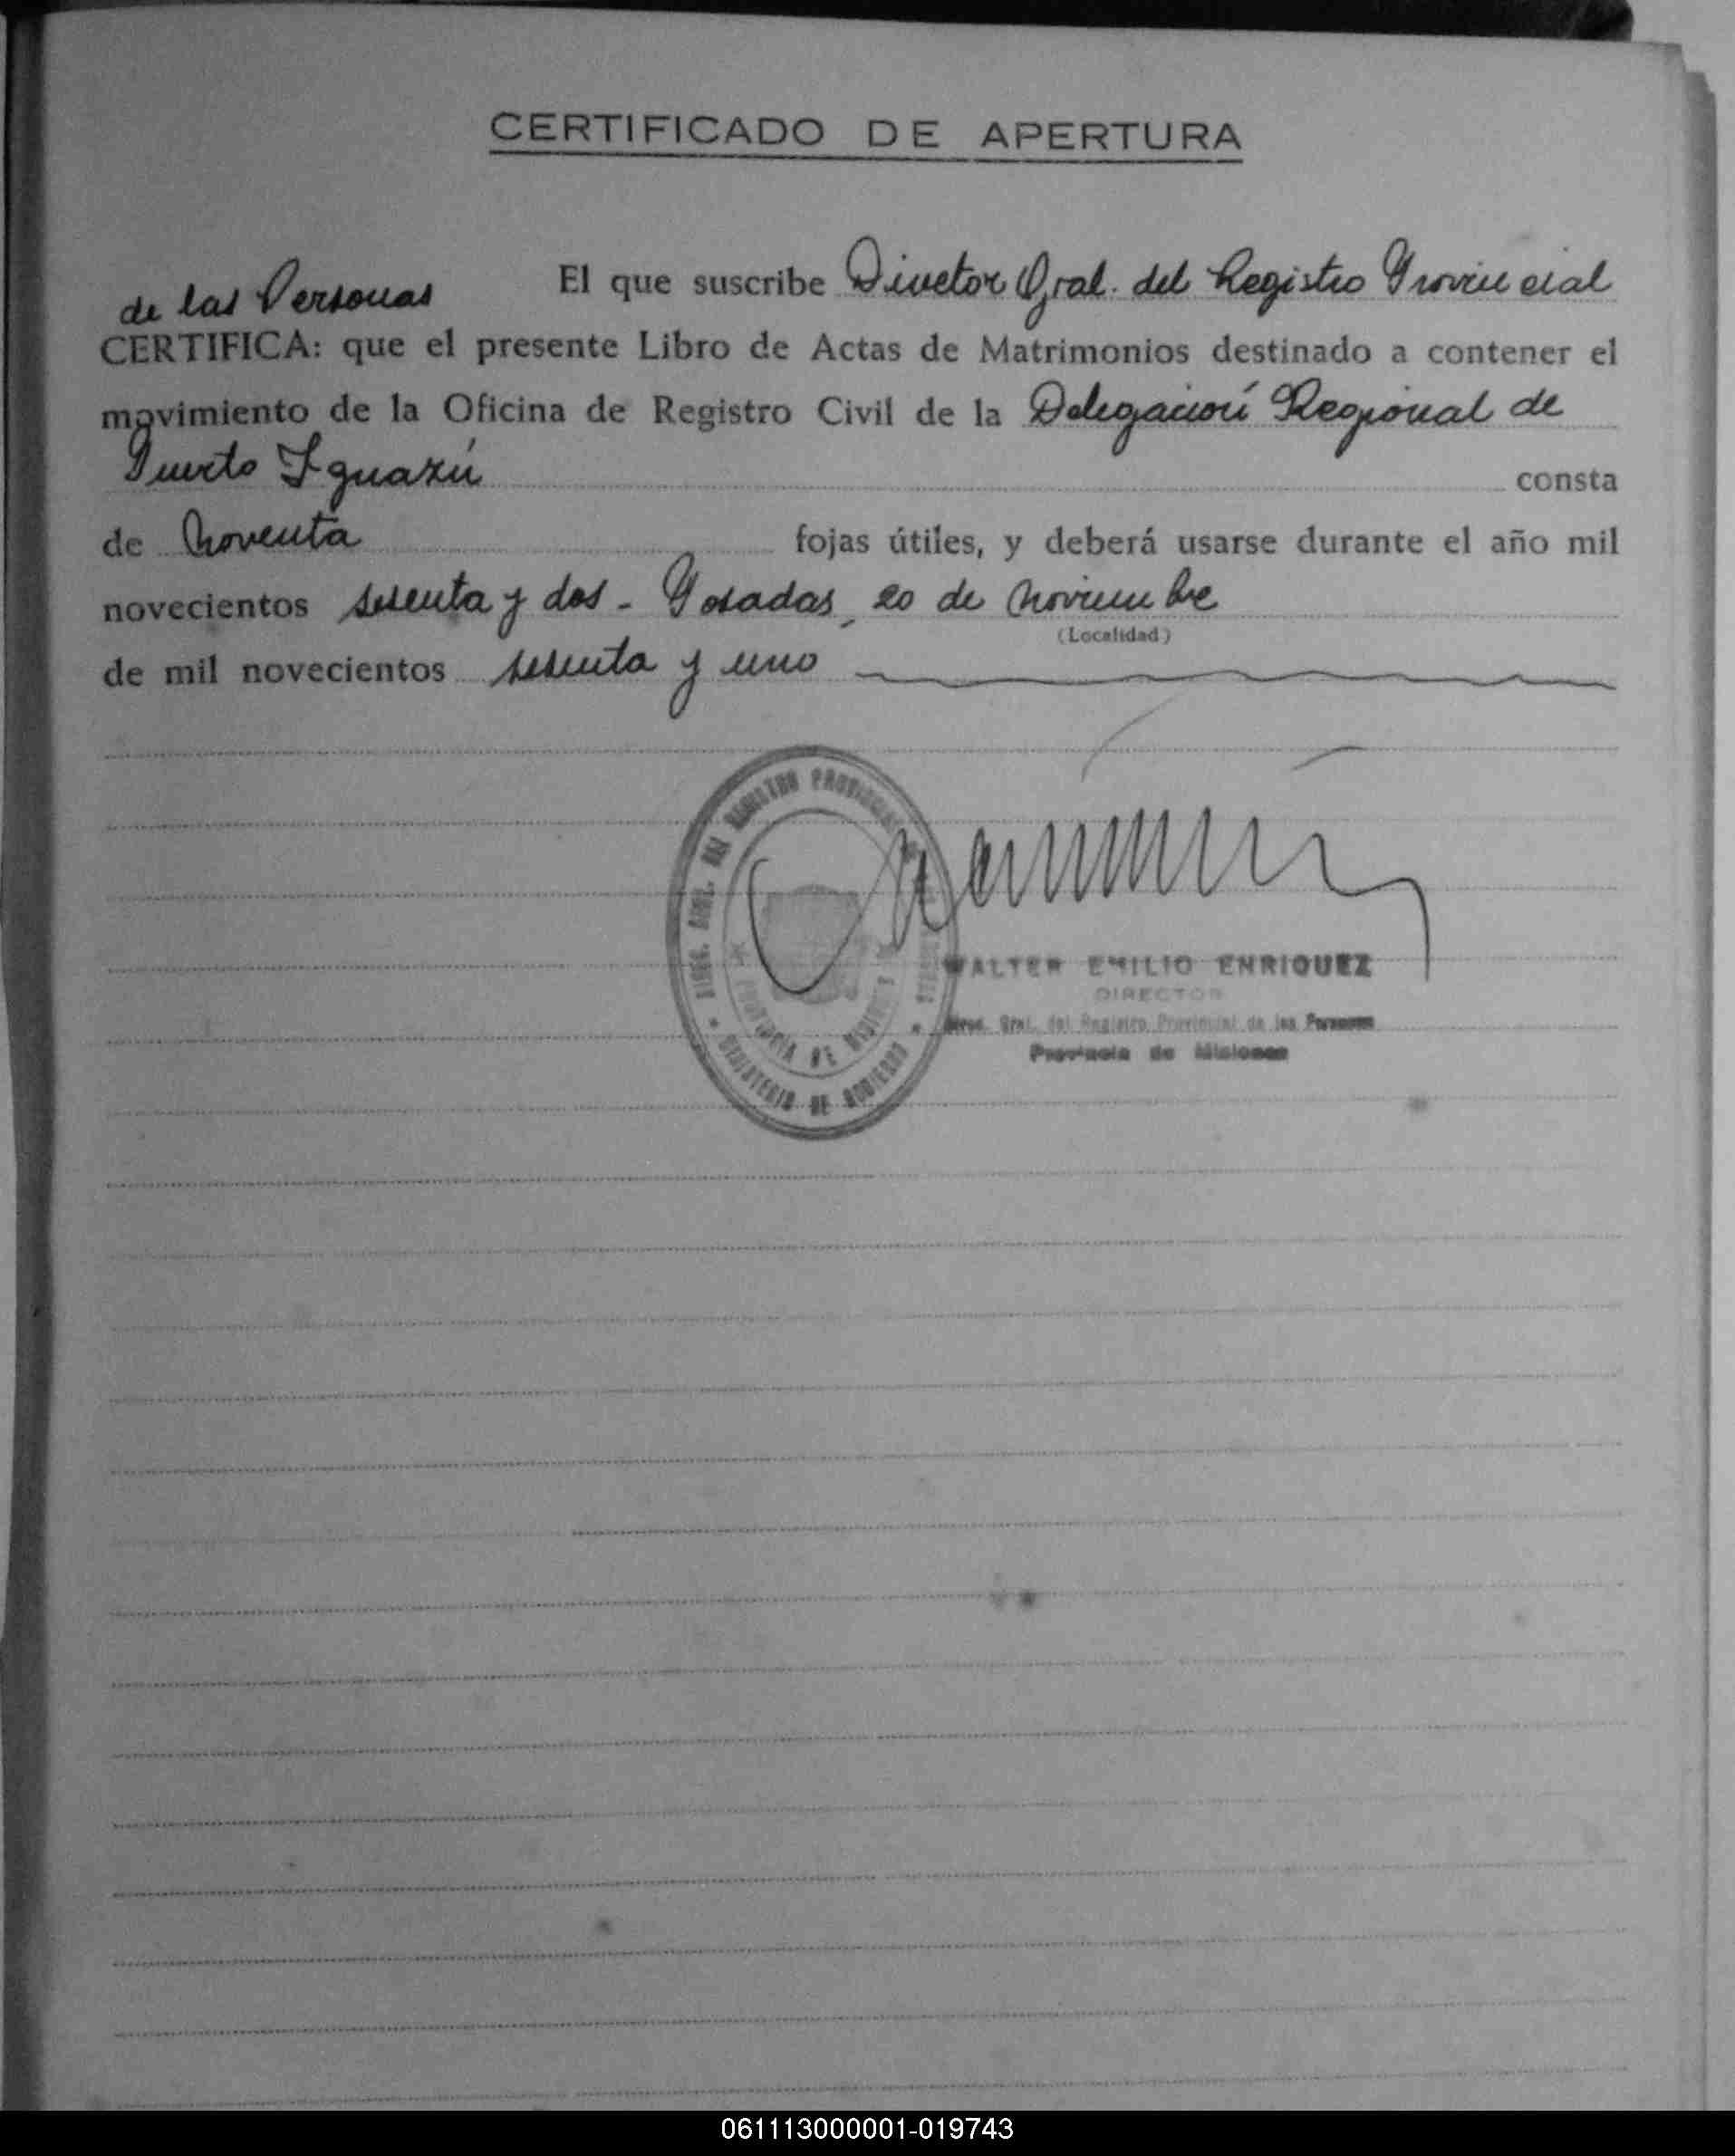 CERTIFICADO DE APERTURA
El que suscribe Director Gral. del Registro Provincial
de las Personas
CERTIFICA: que el presente Libro de Actas de Matrimonios destinado a contener el
movimiento de la Oficina de Registro Civil de la Delegación Regional de
Puerto Iguazú consta
de noventa fojas útiles, y deberá usarse durante el año mil
novecientos sesenta y dos - Posadas, 20 de noviembre
(Localidad)
de mil novecientos sesenta y uno
DIREC. GRAL. DEL REGISTRO PROVINCIAL
PROVINCIA DE MISIONES
MINISTERIO DE GOBIERNO
WALTER EMILIO ENRIQUEZ
DIRECTOR
Direc. Gral. del Registro Provincial de las Personas
Provincia de Misiones
061113000001-019743